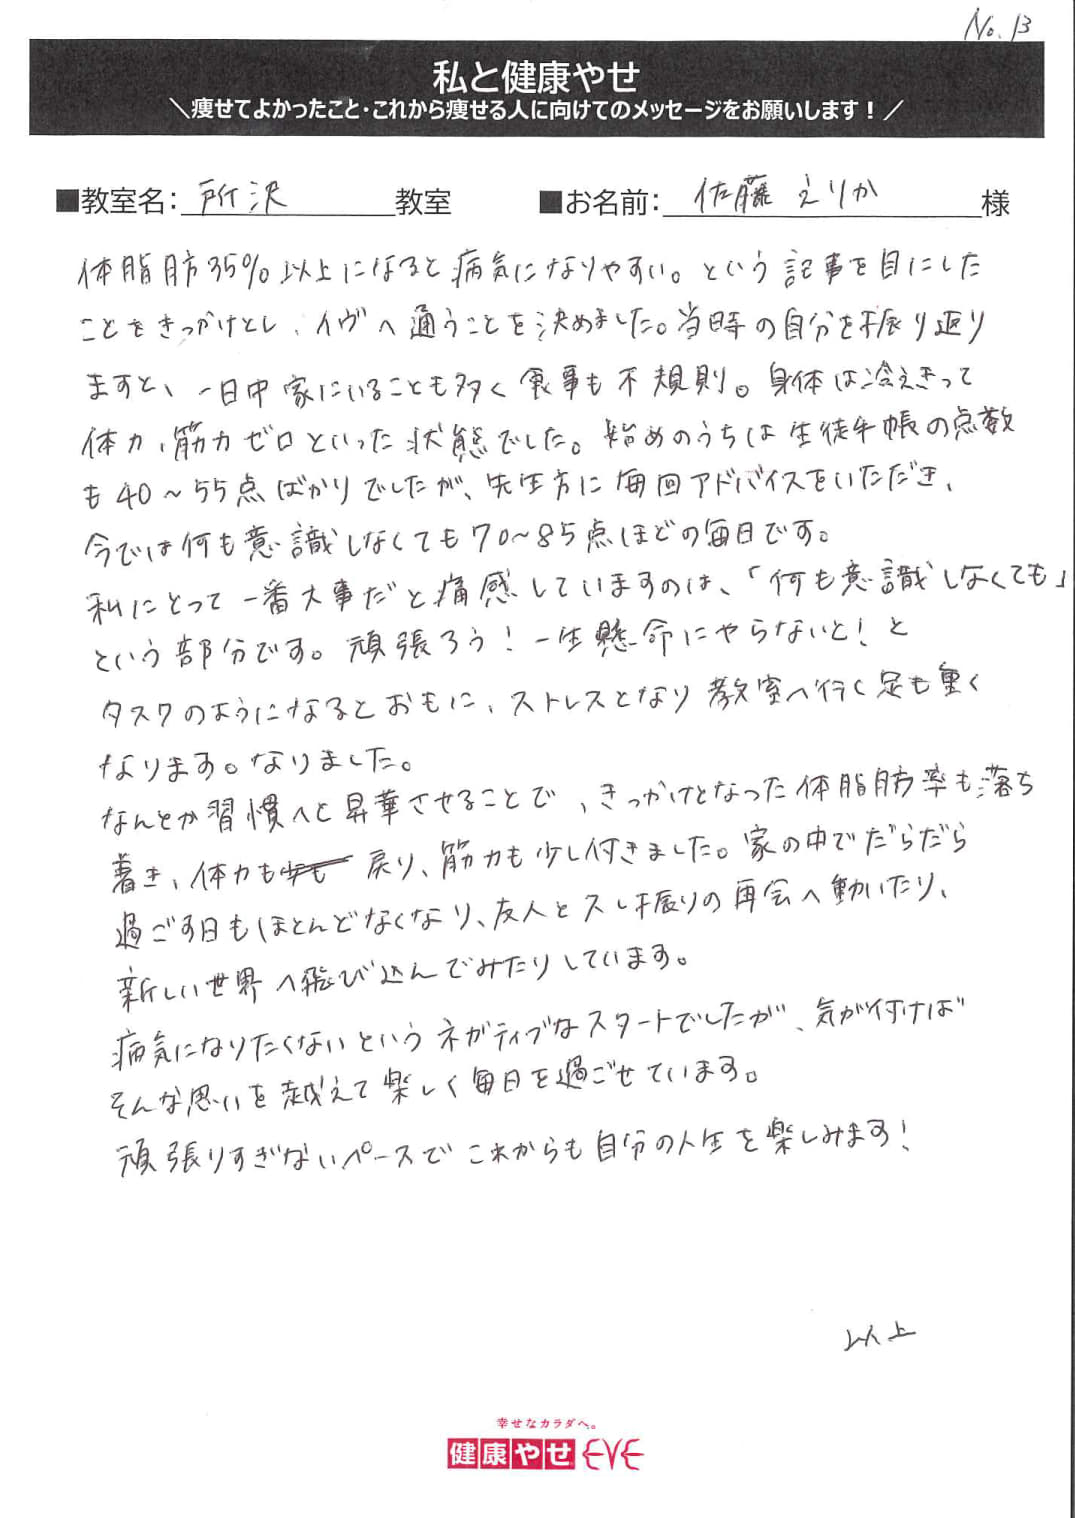 No. 13
私と健康やせ
＼痩せてよかったこと・これから痩せる人に向けてのメッセージをお願いします！／
■教室名：所沢教室　■お名前：佐藤 えりか 様
体脂肪35%以上になると病気になりやすい。という記事を目にした
ことをきっかけとし、イヴへ通うことを決めました。当時の自分を振り返り
ますと、一日中家にいることも多く食事も不規則。身体は冷えきって
体力、筋力ゼロといった状態でした。始めのうちは生徒手帳の点数
も40～55点ばかりでしたが、先生方に毎回アドバイスをいただき、
今では何も意識しなくても70～85点ほどの毎日です。
私にとって一番大事だと痛感していますのは、「何も意識しなくても」
という部分です。頑張ろう！一生懸命にやらないと！と
タスクのようになるとおもに、ストレスとなり教室へ行く足も重く
なります。なりました。
なんとか習慣へと昇華させることで、きっかけとなった体脂肪率も落ち
着き、体力も戻り、筋力も少し付きました。家の中でだらだら
過ごす日もほとんどなくなり、友人と久し振りの再会へ動いたり、
新しい世界へ飛び込んでみたりしています。
病気になりたくないというネガティブなスタートでしたが、気が付けば
そんな思いを越えて楽しく毎日を過ごせています。
頑張りすぎないペースでこれからも自分の人生を楽しみます！
以上
幸せなカラダへ。
健康やせ EVE